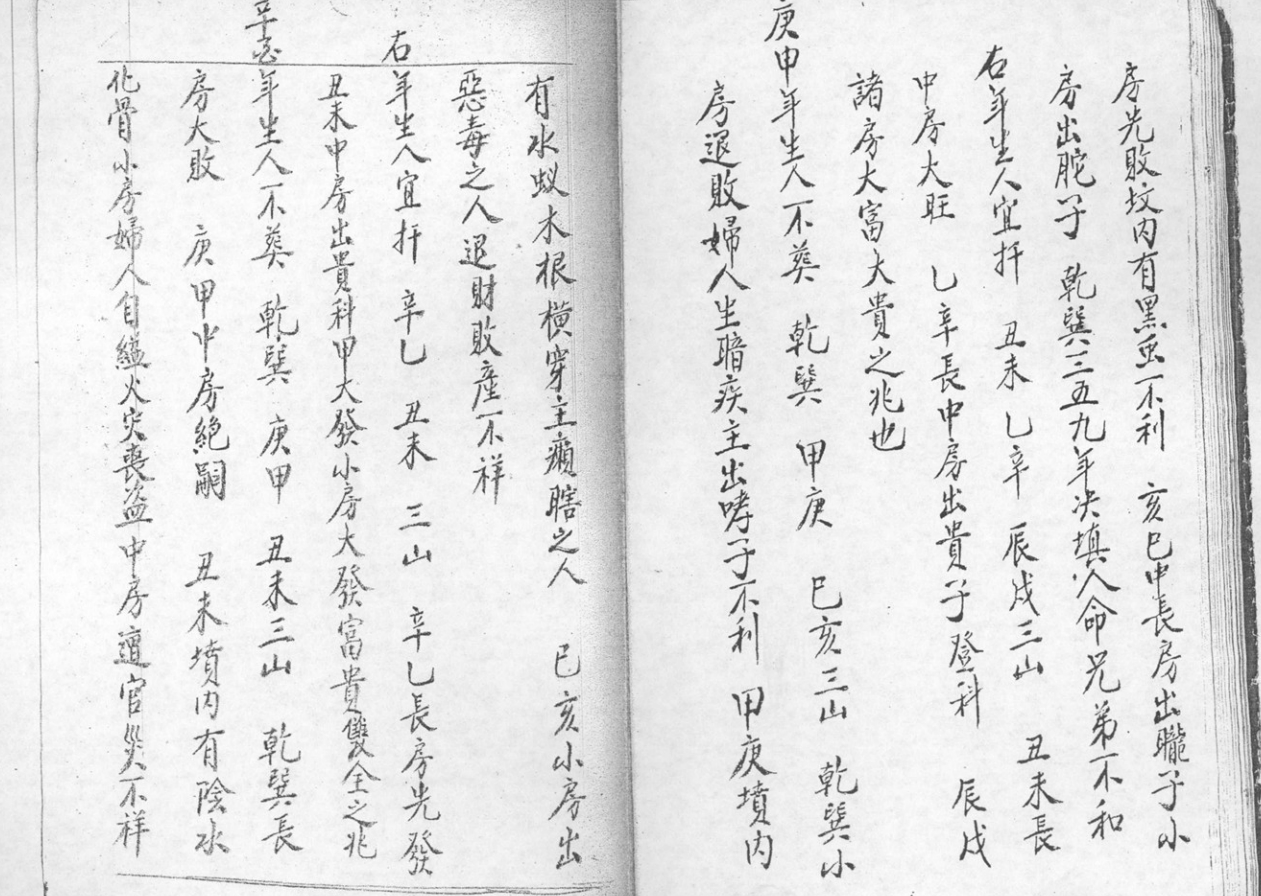 房先敗坟内有黑虫不利 亥巳中長房出矓子小
房出脃子 乾巽三五九年决填人命兄弟不和
右年生人宜扦 丑未 乙辛 辰戌三山 丑未長
中房大旺 乙辛長中房出貴子登科 辰戌
諸房大富大貴之兆也
庚甲年生人不葬 乾巽 甲庚 巳亥三山 乾巽小
房退敗婦人生暗疾主出哮子不利 甲庚墳内
有水蚁木根橫穿主癩瞎之人 巳亥小房出
惡毒之人退財敗産不祥
右年生人宜扦 辛乙 丑未 三山 辛乙長房先發
丑未中房出貴科甲大發小房大發富貴雙全之兆
年生人不葬 乾巽 庚甲 丑未三山 乾巽長
房大敗 庚甲中房絶嗣 丑未墳内有陰水
化骨小房婦人自縊火灾喪盗中房遭官災不祥